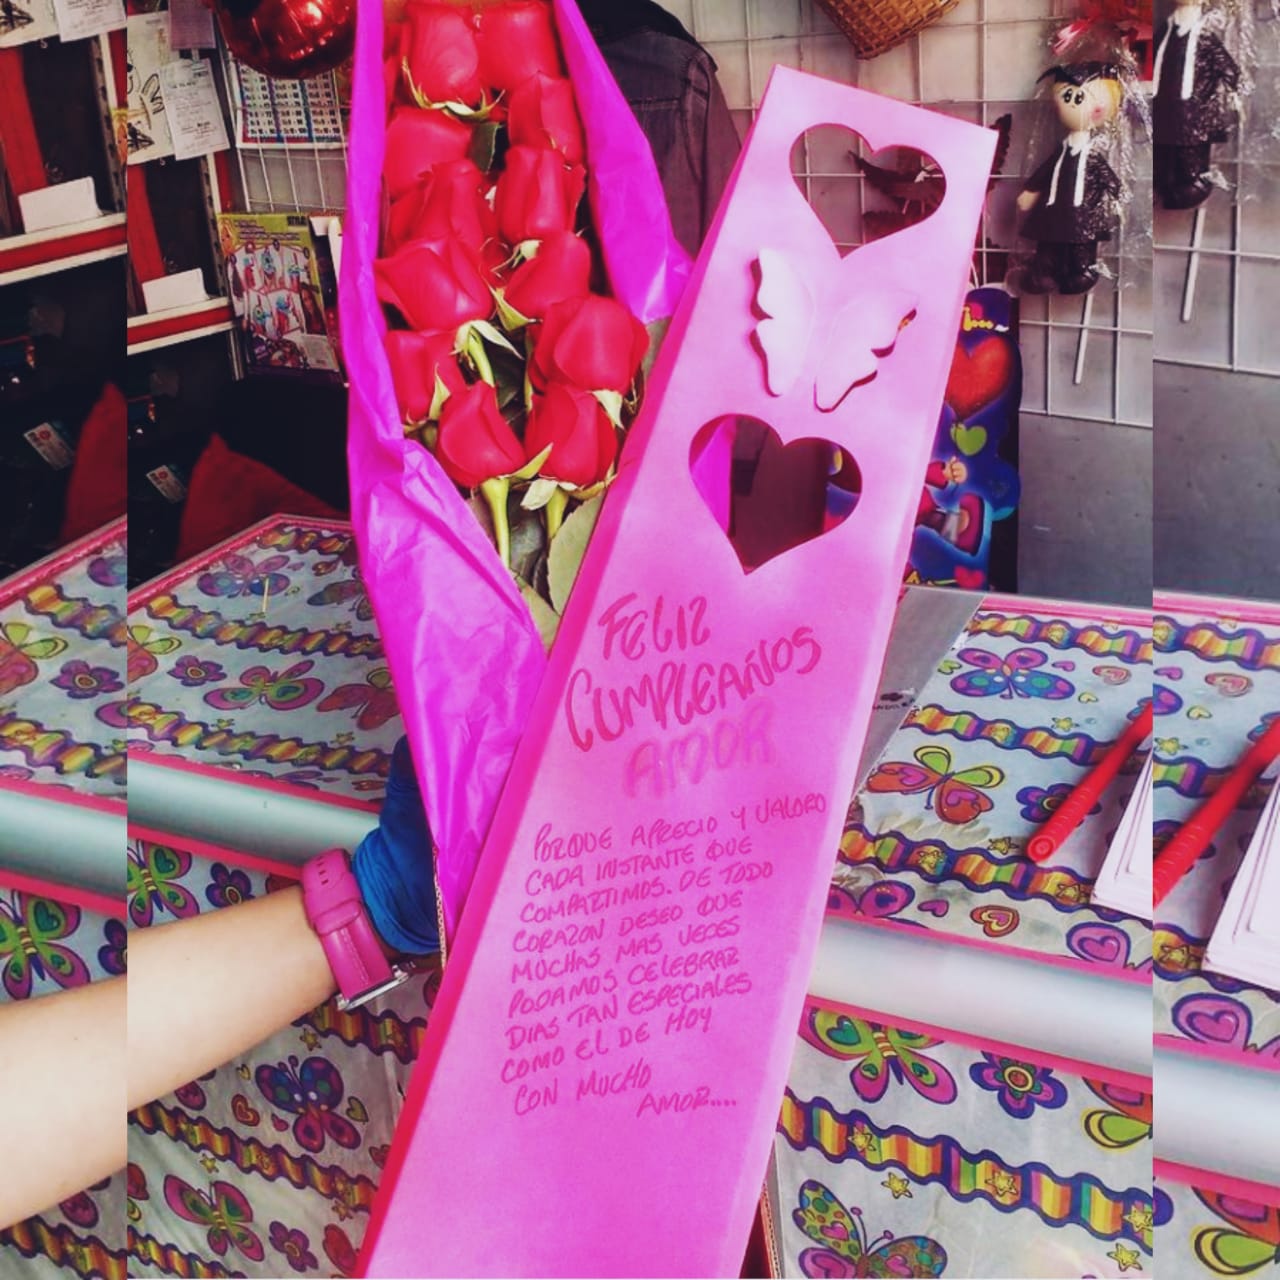 FELIZ
CUMPLEAÑOS
AMOR
PORQUE APRECIO Y VALORO
CADA INSTANTE QUE
COMPARTIMOS. DE TODO
CORAZON DESEO QUE
MUCHAS MAS VECES
PODAMOS CELEBRAR
DIAS TAN ESPECIALES
COMO EL DE HOY
CON MUCHO
AMOR....